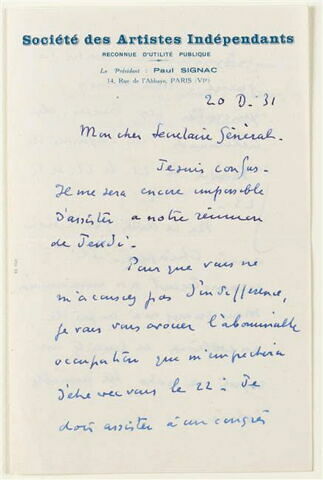 Société des Artistes Indépendants
RECONNUE D'UTILITÉ PUBLIQUE
Le Président : Paul SIGNAC
14, Rue de l'Abbaye, PARIS (VIe)
20 D. 31
Mon cher Secrétaire Général.
Je suis confus.
Il me sera encore impossible
d'assister a notre réunion
de Jeudi.
Pour que vous ne
m'accusiez pas d'indifférence,
je vais vous avouer l'abominable
occupation que m'empechera
d'être avec vous le 22 : Je
dois assister à un congrès